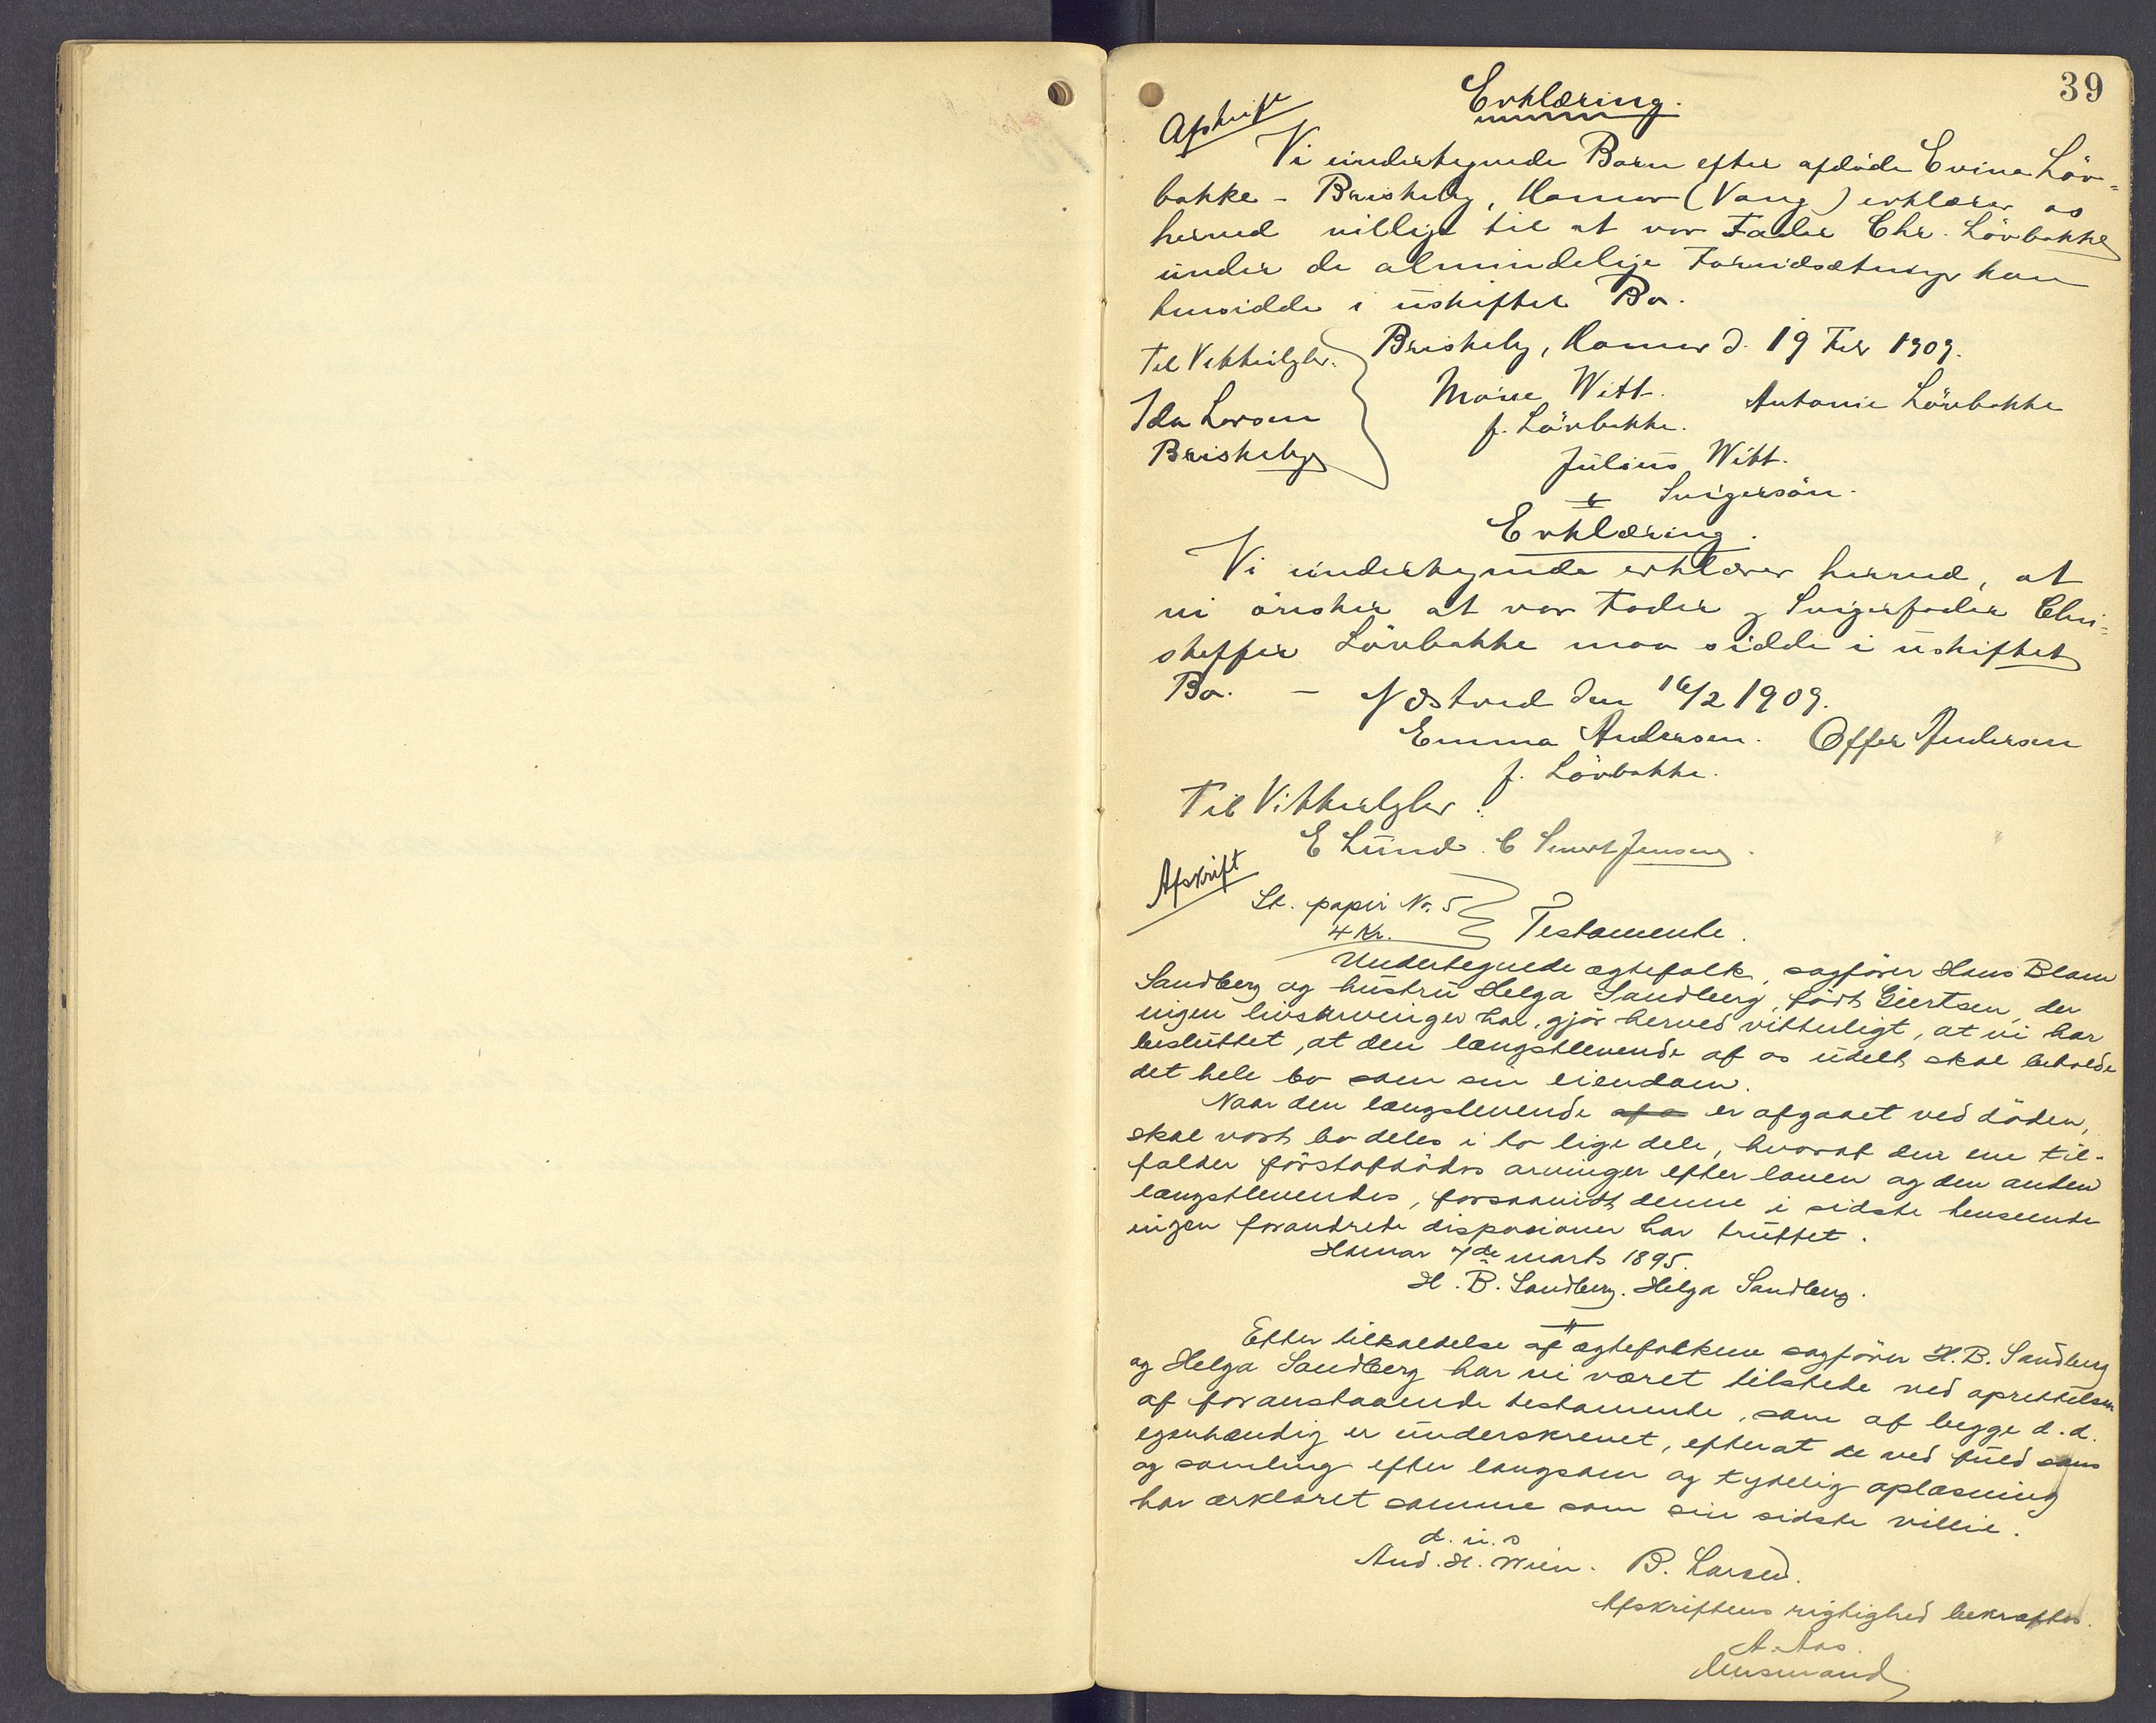 39
Afskrift
Erklæring.
Vi undertegnede Barn efter afdöde Evina Löv-
bakke - Briskeby, Hamar (Vang) erklærer os
herved villige til at vor Fader Chr. Lövbakke
under de almindelige Forudsætninger kan
hensidde i uskiftet Bo.
Briskeby, Hamar d. 19 Feb 1909.
Til Vitterlighr.
Ida Larsen
Briskeby
Marie Witt. Antonie Lövbakke
f. Lövbakke.
Julius Witt.
Svigersön.
Erklæring.
Vi undertegnede erklærer herved, at
vi önsker at vor Fader og Svigerfader Chri-
stoffer Lövbakke maa sidde i uskiftet
Bo. - Næstved den 16/2 1909.
Emma Andersen. Offer Andersen
f. Lövbakke.
Til Vitterlighr:
E Lund. C Jensen.
Afskrift
St. papir No. 5
4 Kr.
Testamente.
Undertegnede ægtefolk, sagförer Hans Blom
Sandberg og hustru Helga Sandberg, född Giertsen, der
ingen livsarvinger har, gjör herved vitterligt, at vi har
besluttet, at den længstlevende af os udelt skal beholde
det hele bo som sin eiendom.
Naar den længslevende af o er afgaaet ved döden,
skal vort bo deles i to lige dele, hvoraf den ene til-
falder förstafdödes arvinger efter loven og den anden
længstlevendes, forsaavidt denne i sidste henseende
ingen forandrede disposioner har truffet.
Hamar 7de marts 1895.
H. B. Sandberg. Helga Sandberg.
Efter tilkaldelse af ægtefolkene sagförer H. B. Sandberg
og Helga Sandberg har vi været tilstede ved oprettelsen
af foranstaaende testamente, som af begge d. d.
egenhændig er underskrevet, efterat de ved fuld sans
og samling efter langsom og tydelig oplæsning
har ærklæret samme som sin sidste villie.
d. u. s
And. H. Wien. B. Larsen.
Afskriftens rigtighed bekræftes.
A. Aas.
lensmand